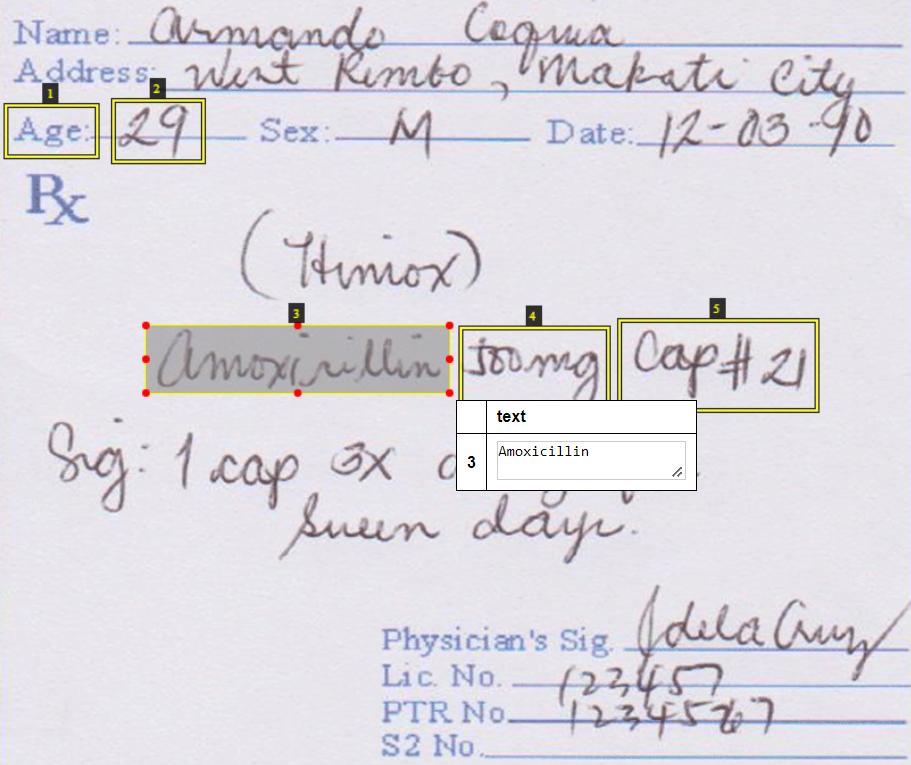 Name: Armando
Address: West Rembo, Makati City
1 2
Age: 29 Sex: M Date: 12-03-90
Rx
(Himox)
3 4 5
Amoxicillin 500mg Cap # 21
text
3 Amoxicillin
Sig: 1 cap 3x
seven days.
Physician's Sig. Jdela Cruz
Lic. No. 123457
PTR No. 1234567
S2 No.